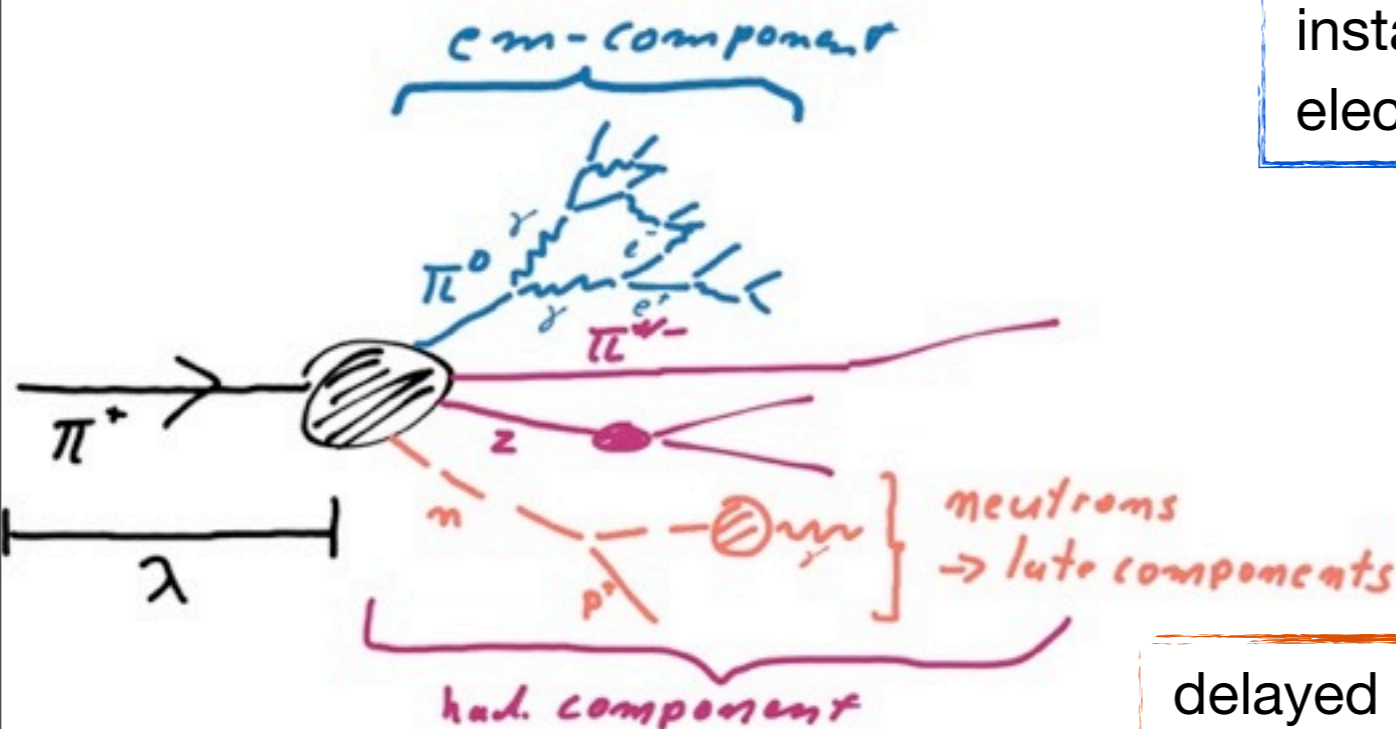 em-component
insta
elec
γ
π⁰
e⁻
γ
e⁺
π⁺
z
n
neutrons
→ late components
λ
γ
p⁺
had. component
delayed